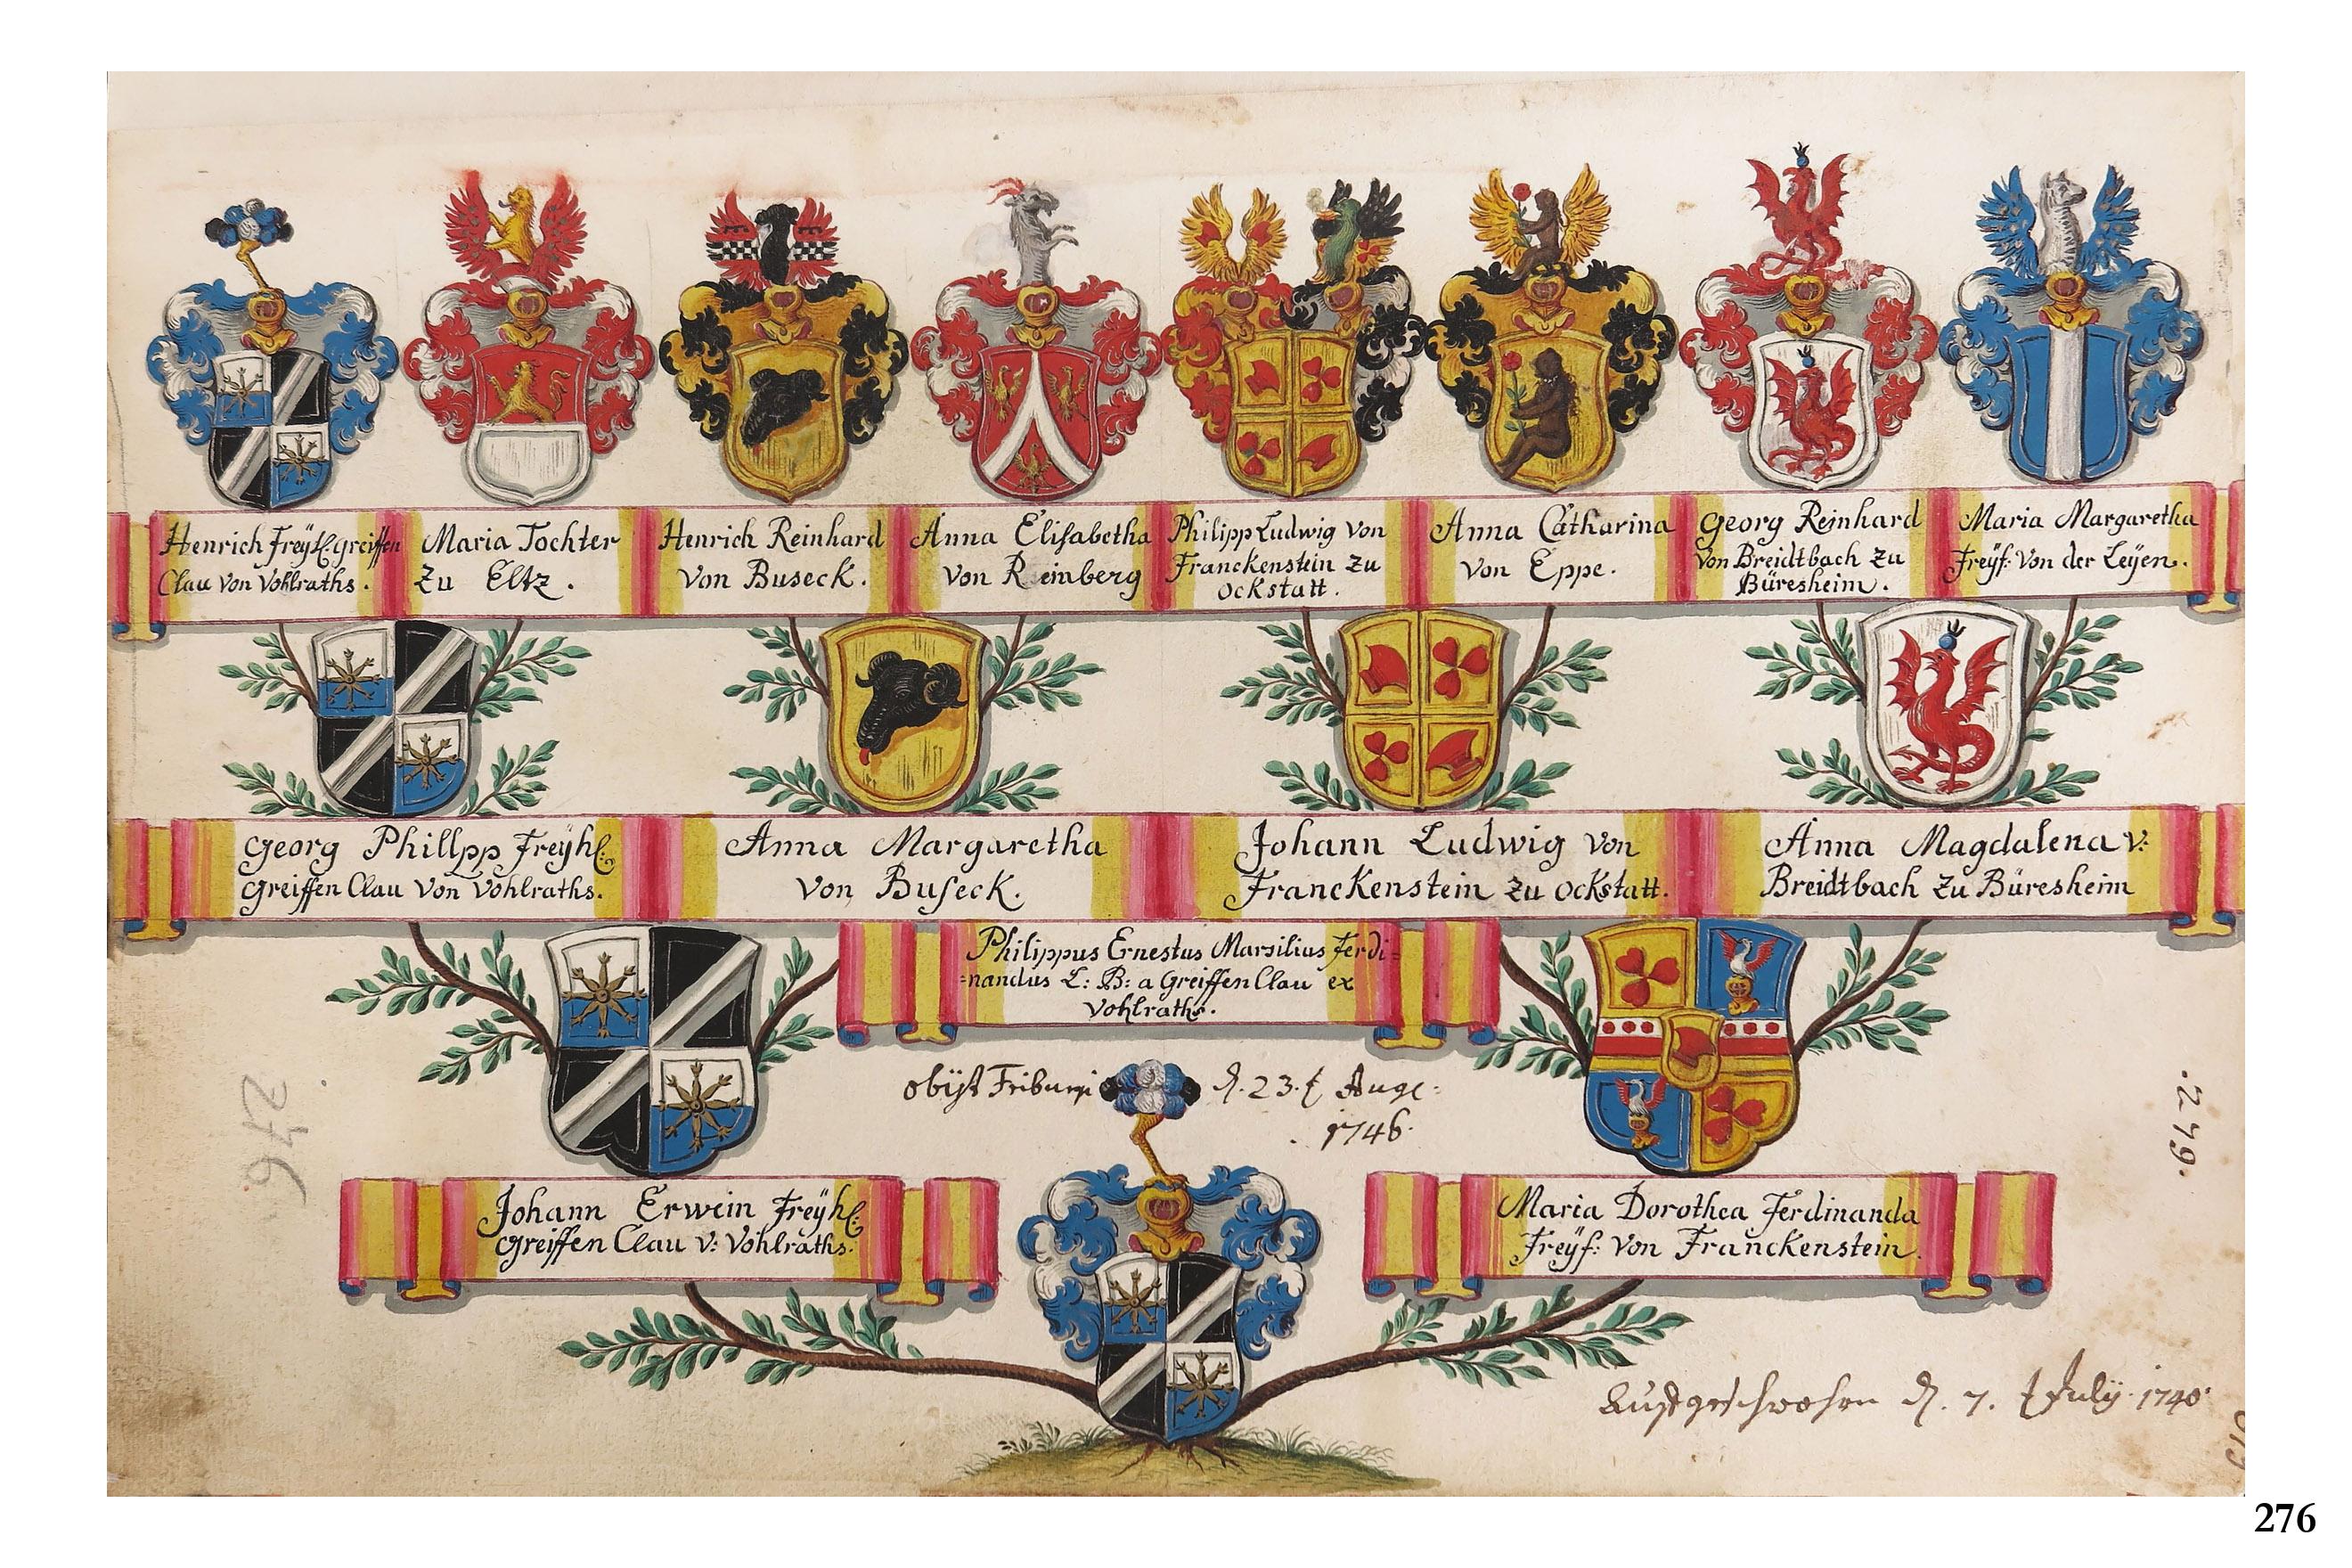 Henrich Freyh: Greiffen
Clau von Vohlraths.
Maria Tochter
zu Eltz.
Henrich Reinhard
von Buseck.
Anna Elisabetha
von R einberg
Philipp Ludwig von
Franckenstein zu
Ockstatt.
Anna Catharina
von Eppe.
Georg Reinhard
von Breidtbach zu
Büresheim.
Maria Margaretha
Freÿf: von der Leÿen.
Georg Phillpp Freÿh:
Greiffen Clau von Vohlraths.
Anna Margaretha
von Buseck.
Johann Ludwig von
Franckenstein zu Ockstatt.
Anna Magdalena v:
Breidtbach zu Büresheim
Philippus Ernestus Marsilius Ferdi=
=nandus L: B: a Greiffen Clau ex
Vohlraths.
obijt Friburgi d. 23. t Aug:
1746.
276
.279.
Johann Erwein Freÿh:
Greiffen Clau v: Vohlraths.
Maria Dorothea Ferdinanda
Freÿf: von Franckenstein.
Aufgeschwohren d. 7. t Julÿ. 1740.
276